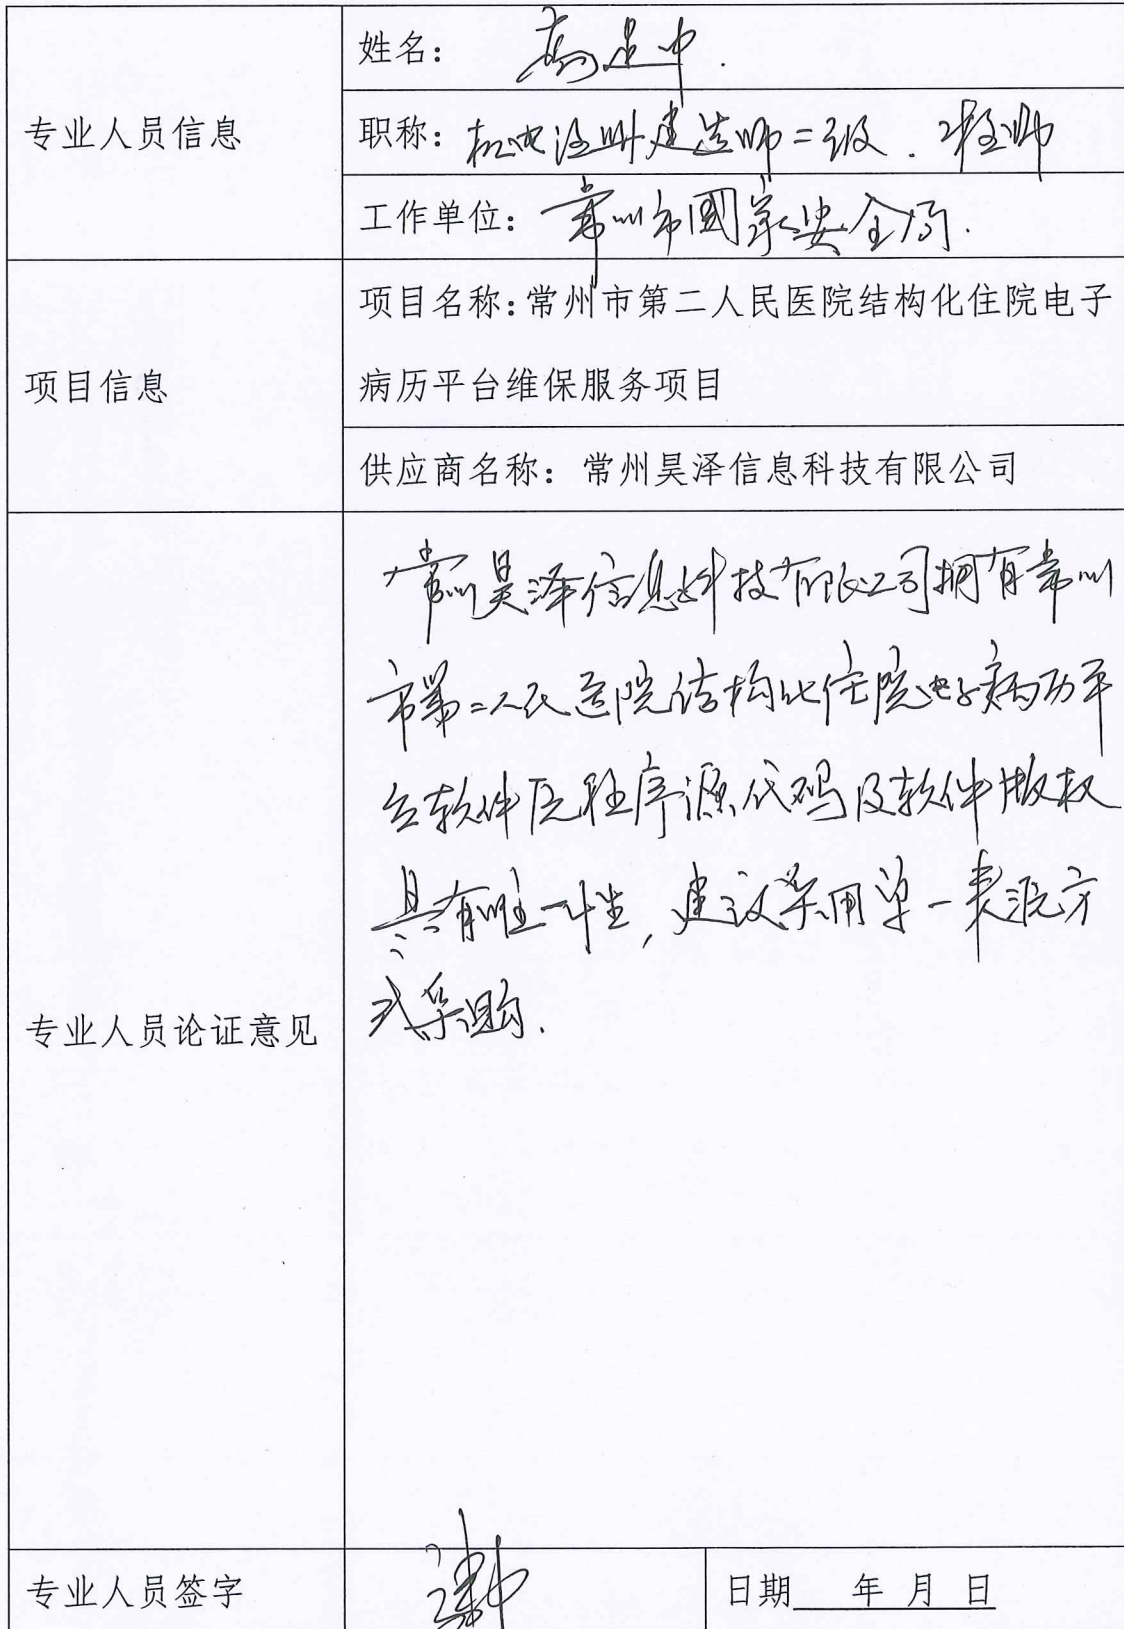 专业人员信息
姓名： 高建中.
职称：机电注册建造师二级. 工程师
工作单位：常州市國家安全局.
项目信息
项目名称：常州市第二人民医院结构化住院电子
病历平台维保服务项目
供应商名称：常州昊泽信息科技有限公司
专业人员论证意见
常州昊泽信息科技有限公司拥有常州
市第二人民医院结构化住院电子病历平
台软件 程序源代码及软件版权
具有唯一性，建议采用单一来源方
式采购.
专业人员签字
日期 年 月 日